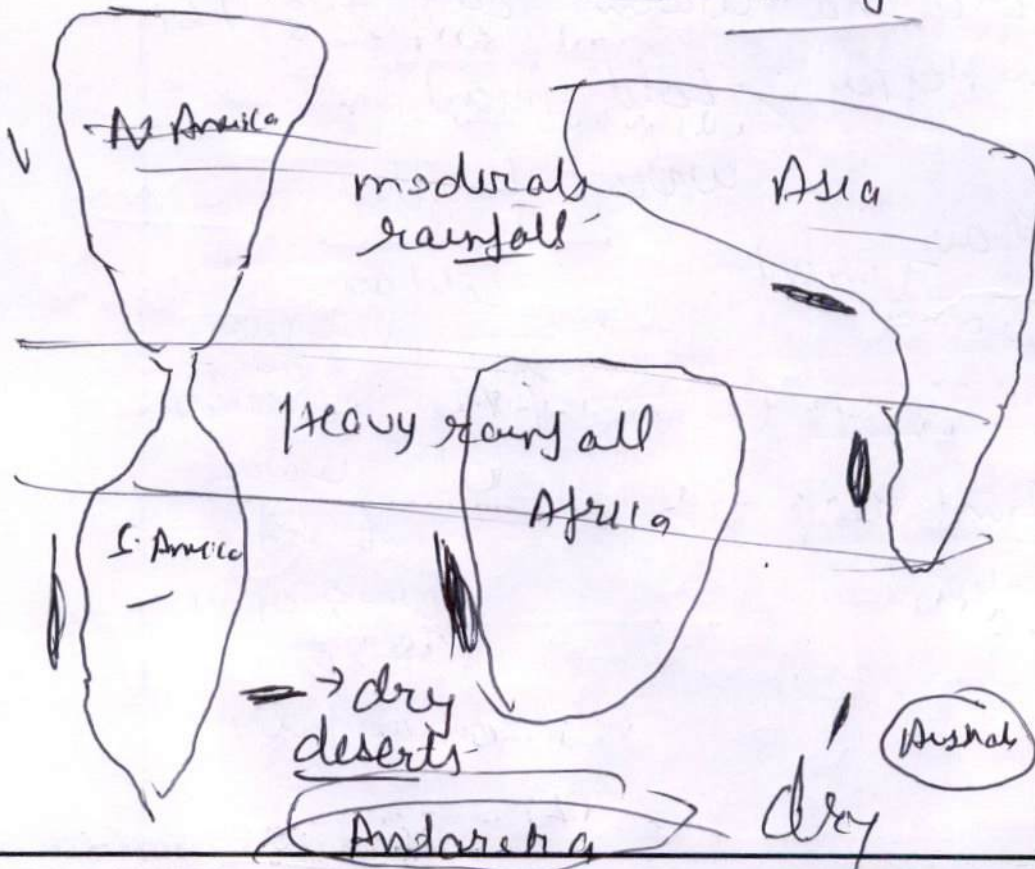 N America
moderate
rainfall
Asia
Heavy rainfall
Africa
S. America
→ dry
deserts
Antarctica
dry